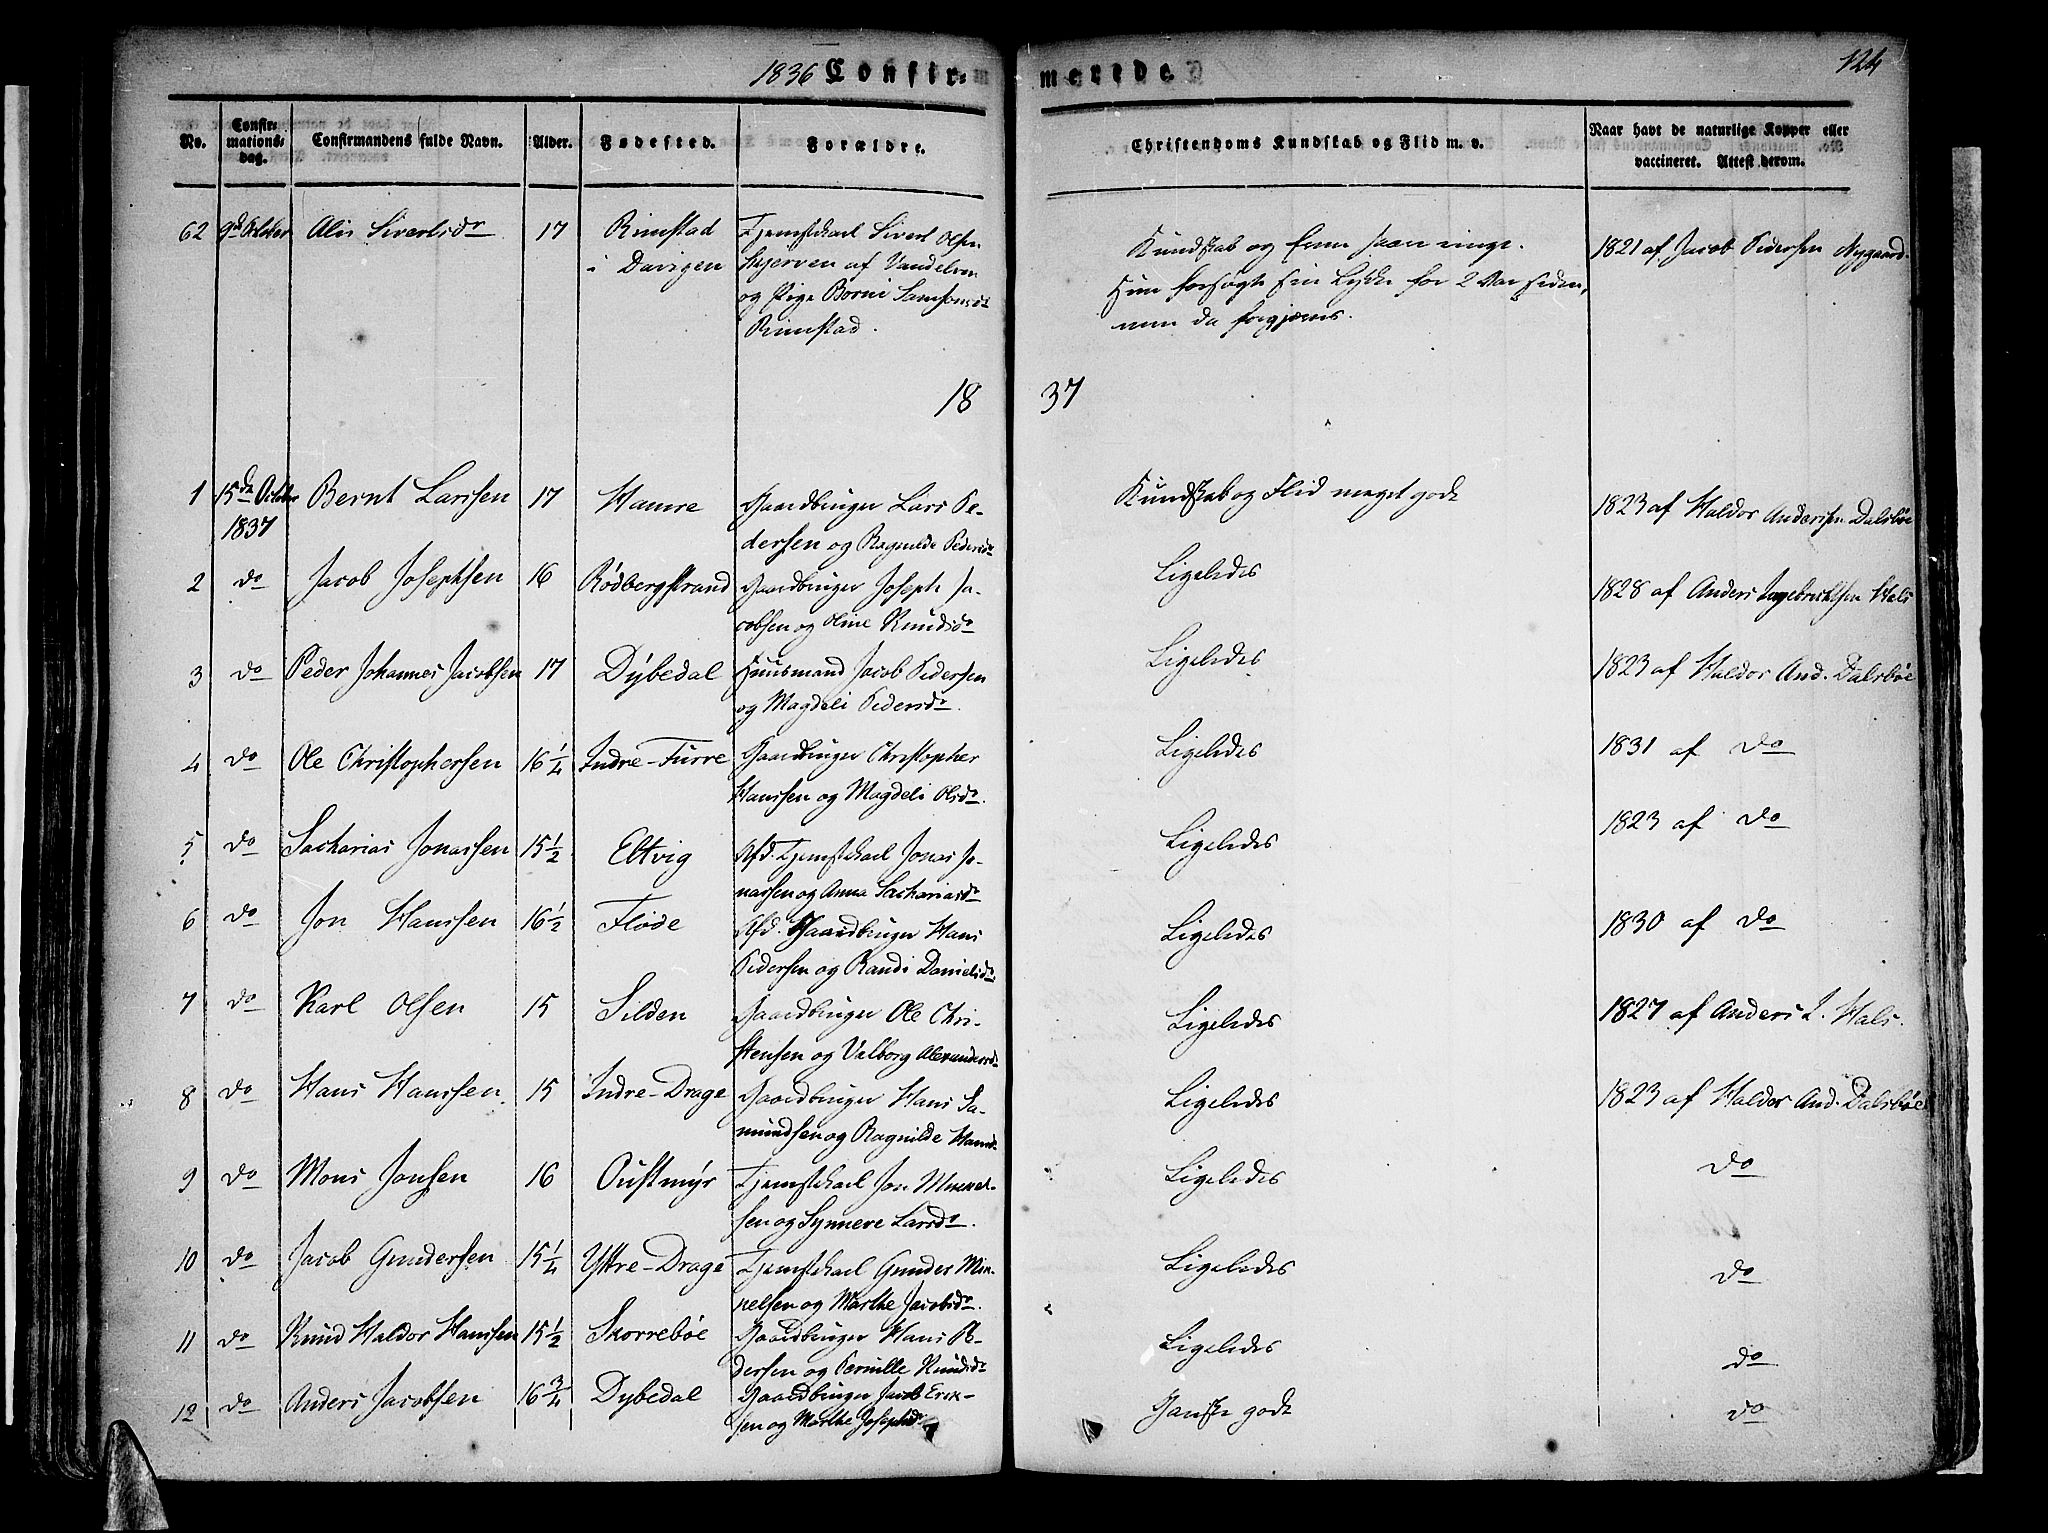 1836 Confir-
merede.
124
No.
Confir-
mations-
dag.
Confirmandens fulde Navn.
Alder.
Fødested.
Forældre.
Christendoms Kundskab og Flid m. v.
Naar havt de naturlige Kopper eller
vaccineret. Attest derom.
62 9de October Alis Sivertsdr 17 Rimstad Tjenestekarl Sivert Olsen
i Davigen Skjerven af Vandelven
og Pige Borni Samsonsdr
Rimstad.
Kundskab og
Hun forsøgte sin Lykke for 2 Aar siden,
men da forgjæves.
1821 af Jacob Pedersen Nygaard.
18 37
1 15de October Bernt Larssen 17 Hamre Gaardbruger Lars Pe-
1837 dersen og Ragnilde Pedersdr
Kundskab og Flid meget godt
1823 af Haldor Anderssen Dalsbøe
2 do Jacob Josephsen 16 Rødbergstrand Gaardbruger Joseph Ja-
cobsen og Oline Knudsdr
Ligeledes
1828 af Anders Ingebrichtsen Hals
3 do Peder Johannes Jacobsen 17 Dybedal Huusmand Jacob Pedersen
og Magdeli Pedersdr.
Ligeledes
1823 af Haldor And. Dalsbøe
4 do Ole Christophersen 16 1/4 Indre-Furre Gaardbruger Christopher
Hanssen og Magdeli Olsdr.
Ligeledes
1831 af do
5 do Sacharias Jonassen 15 1/2 Eltvig Afd. Tjenestekarl Jonas Jo-
nassen og Anna Sachariasdr
Ligeledes
1823 af do
6 do Jon Hanssen 16 1/2 Flode Afd. Gaardbruger Hans
Pedersen og Randi Danielsdr.
Ligeledes
1830 af do
7 do Karl Olsen 15 Silden Gaardbruger Ole Chri-
stensen og Valborg Alexandersdr
Ligeledes
1827 af Anders I. Hals.
8 do Hans Hanssen 15 Indre-Drage Gaardbruger Hans Sa-
mundsen og Ragnilde Hansdr
Ligeledes
1823 af Haldor And. Dalsbøe
9 do Mons Jonsen 16 Oustmyr Tjenestekarl Jon Mikkel-
sen og Synneve Larsdr.
Ligeledes
do
10 do Jacob Gundersen 15 1/4 Yttre-Drage Tjenestekarl Gunder Mik-
kelsen og Marthe Jacobsdr.
Ligeledes
do
11 do Knud Haldor Hanssen 15 1/2 Skorrebøe Gaardbruger Hans Pe-
dersen og Pernille Knudsdr
Ligeledes
do
12 do Anders Jacobsen 16 3/4 Dybedal Gaardbruger Jacob Erik-
sen og Marthe Josephsdr
Ganske godt
do